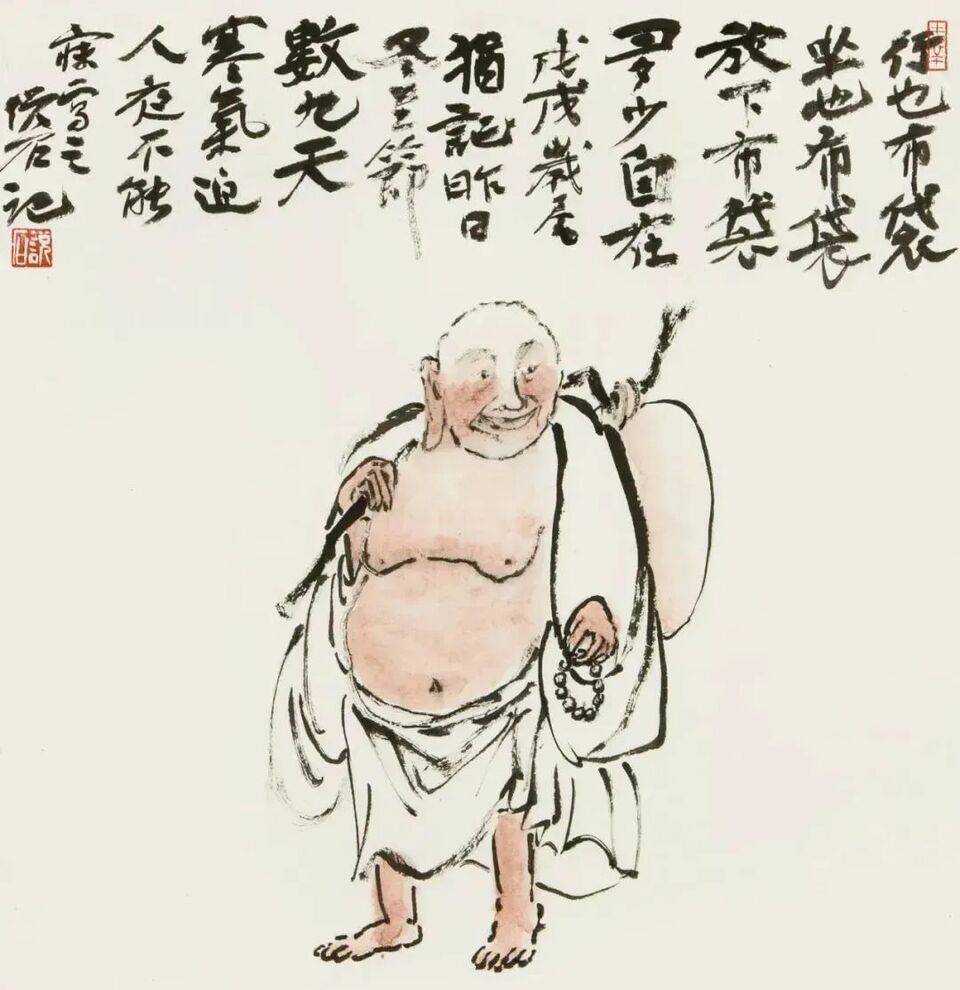 行也布袋
坐也布袋
放下布袋
多少自在
戊戌歲尾
猶記昨日
冬至節
數九天
寒氣迫
人夜不能
寐寫之
石記
說石